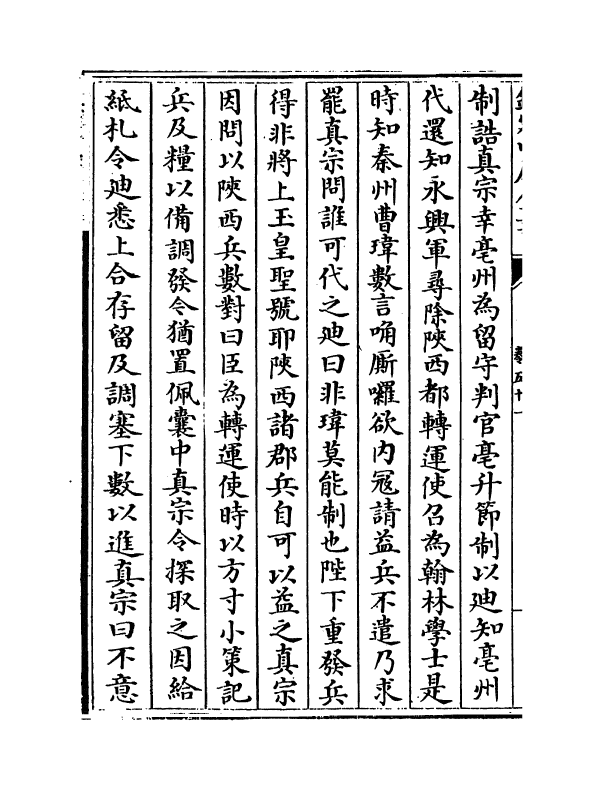 制誥真宗幸亳州為留守判官亳升節制以廸知亳州
代還知永興軍尋除陜西都轉運使召為翰林學士是
時知秦州曹瑋數言唃厮囉欲內冦請益兵不遣乃求
罷真宗問誰可代之廸曰非瑋莫能制也陛下重發兵
得非將上玉皇聖號耶陜西諸郡兵自可以益之真宗
因問以陜西兵數對曰臣為轉運使時以方寸小策記
兵及糧以備調發今猶置佩囊中真宗令探取之因給
紙札令廸悉上合存留及調塞下數以進真宗曰不意